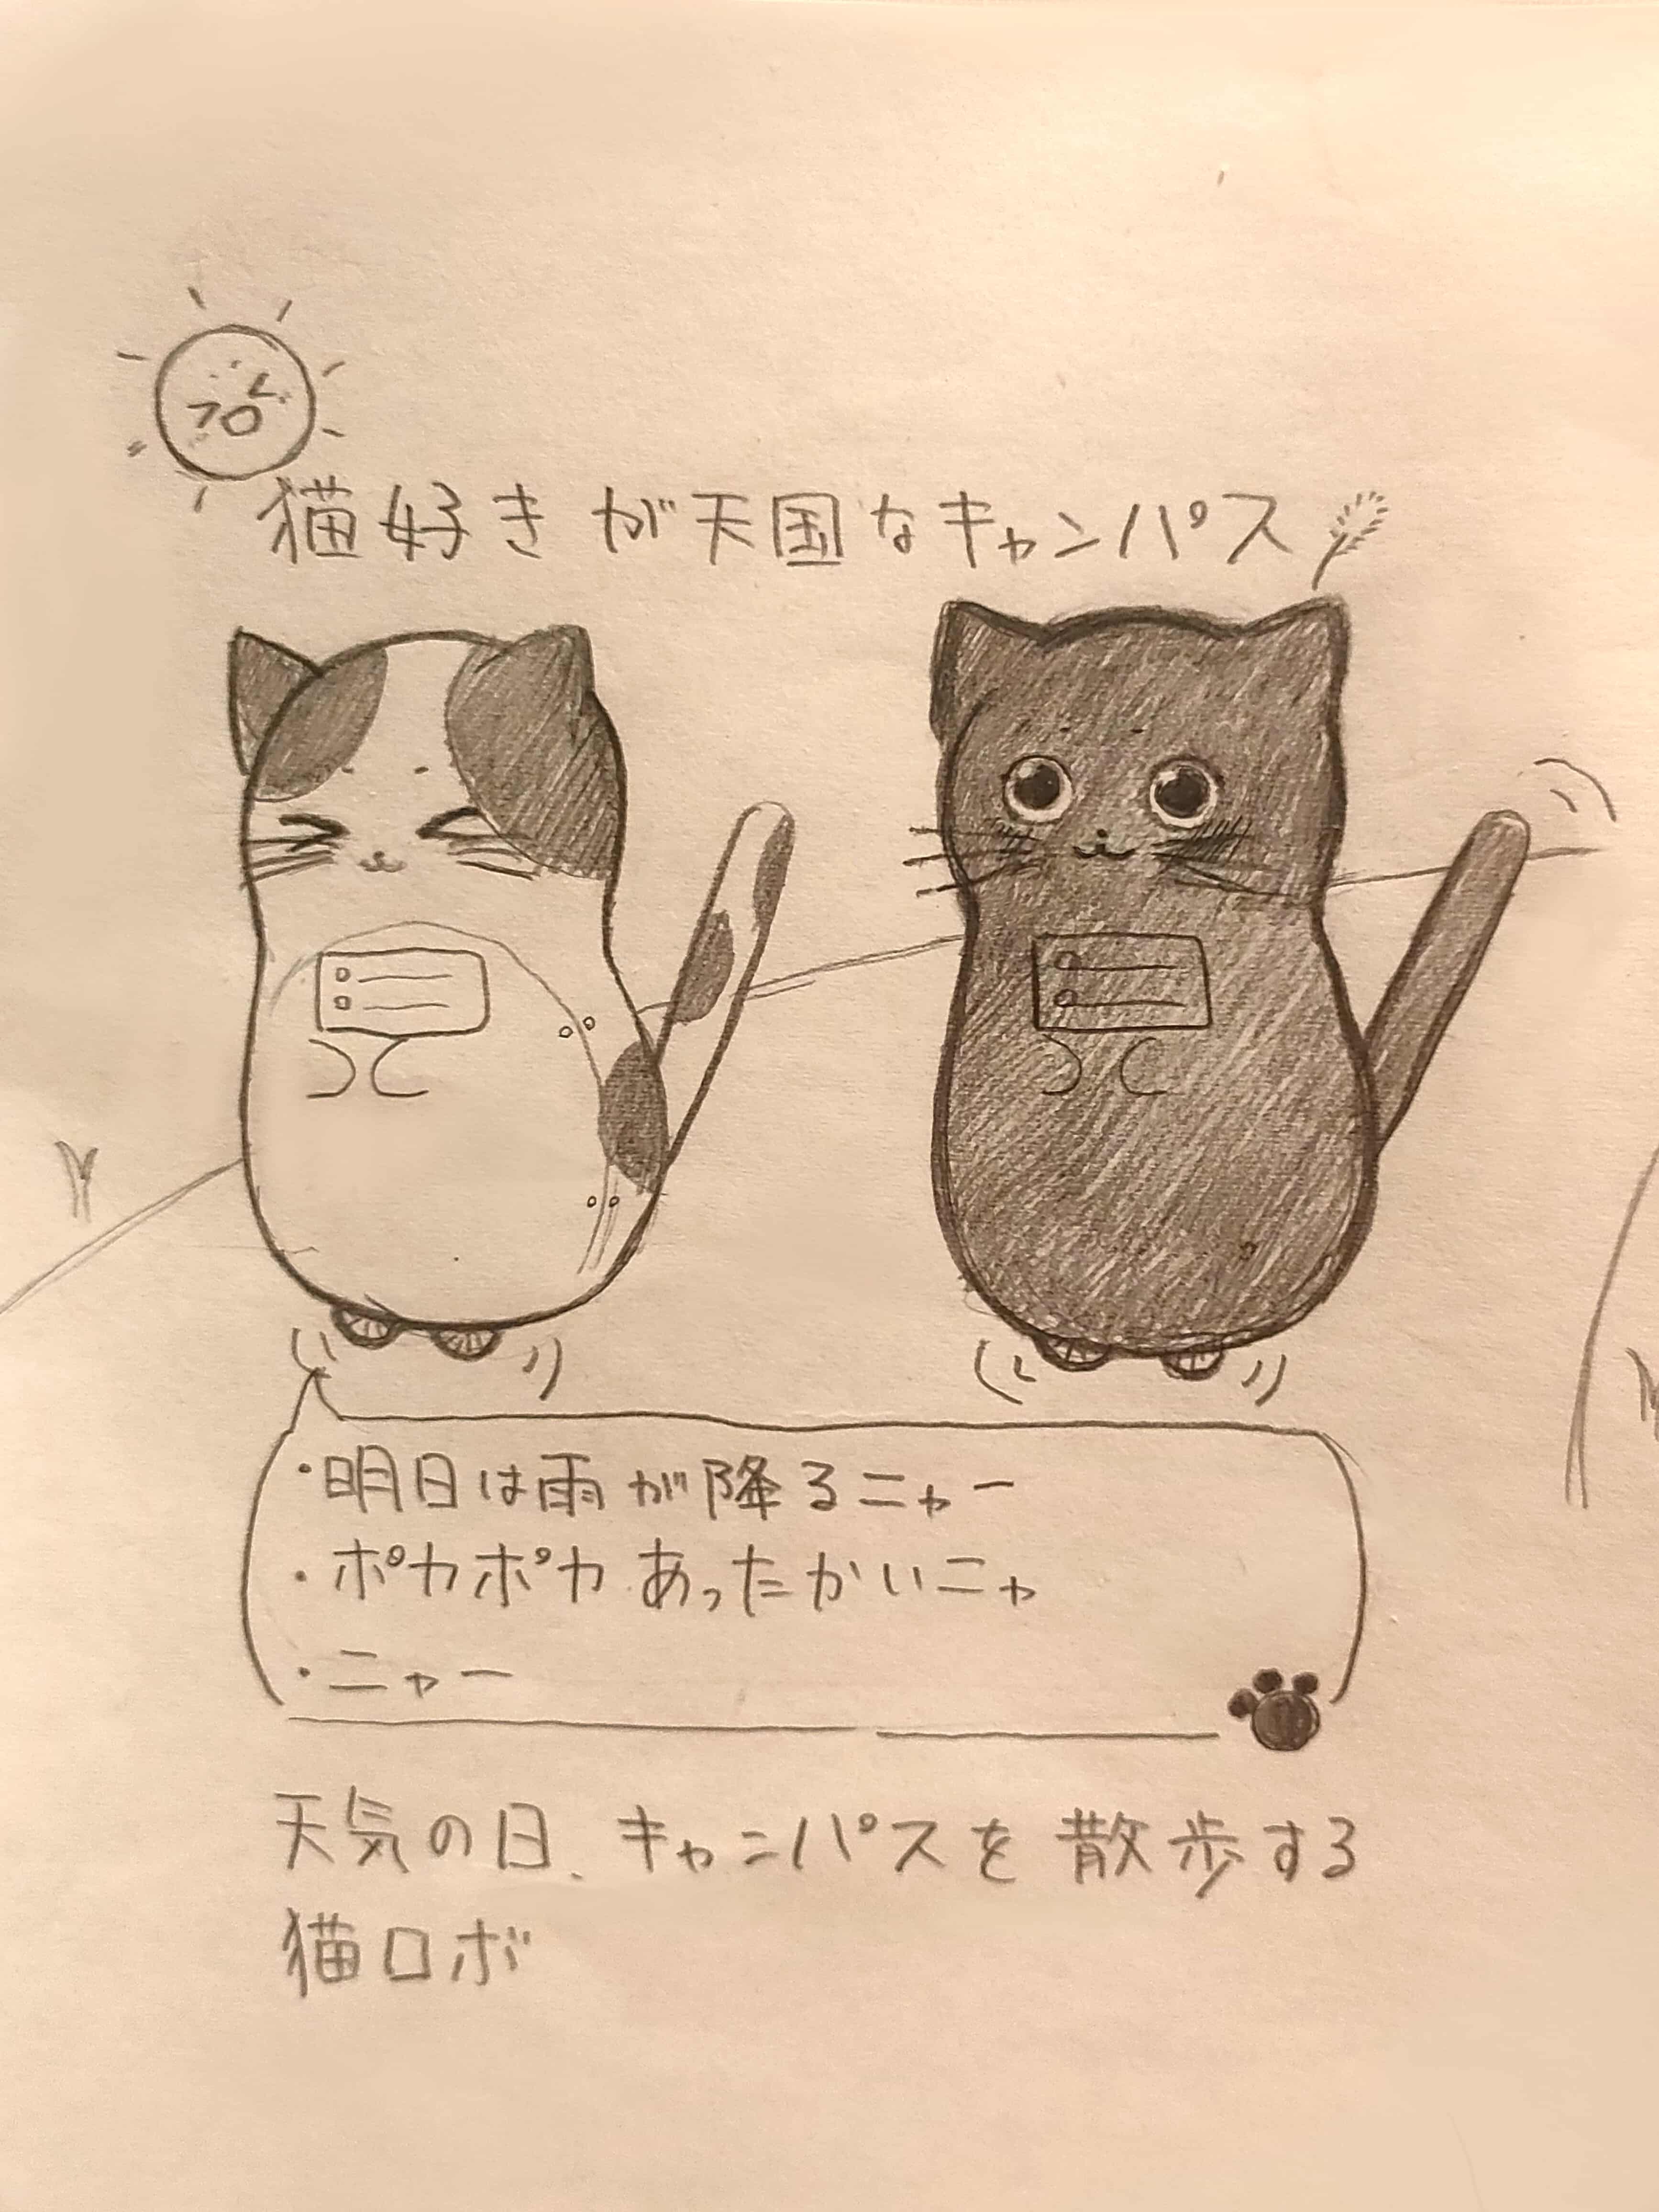 猫好きが天国なキャンパス
・明日は雨が降るニャー
・ポカポカあったかいニャ
・ニャー
天気の日、キャンパスを散歩する
猫ロボ